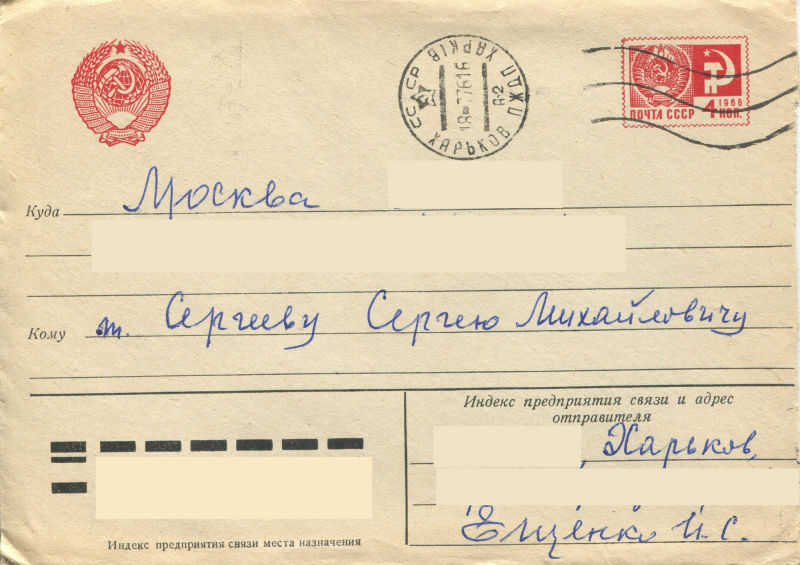 СССР ХАРКІВ ПЖДП
18-776 16
А-2
ХАРЬКОВ
ПОЧТА СССР
1966
4 КОП.
Куда Москва
Кому т. Сергееву Сергею Михайловичу
Индекс предприятия связи и адрес
отправителя
Харьков,
Ещенко И. С.
Индекс предприятия связи места назначения